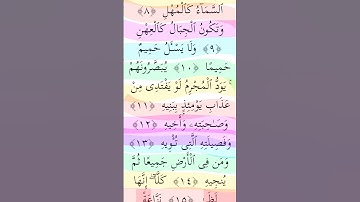 ٱلسَّمَآءُ كَٱلْمُهْلِ ﴿٨﴾
وَتَكُونُ ٱلْجِبَالُ كَٱلْعِهْنِ
﴿٩﴾ وَلَا يَسْـَٔلُ حَمِيمٌ
حَمِيمًا ﴿١٠﴾ يُبَصَّرُونَهُمْ
ۚ يَوَدُّ ٱلْمُجْرِمُ لَوْ يَفْتَدِى مِنْ
عَذَابِ يَوْمِئِذٍۭ بِبَنِيهِ ﴿١١﴾
وَصَـٰحِبَتِهِۦ وَأَخِيهِ ﴿١٢﴾
وَفَصِيلَتِهِ ٱلَّتِى تُـْٔوِيهِ ﴿١٣﴾
وَمَن فِى ٱلْأَرْضِ جَمِيعًا ثُمَّ
يُنجِيهِ ﴿١٤﴾ كَلَّآ ۖ إِنَّهَا
لَظَىٰ ﴿١٥﴾ نَزَّاعَةً